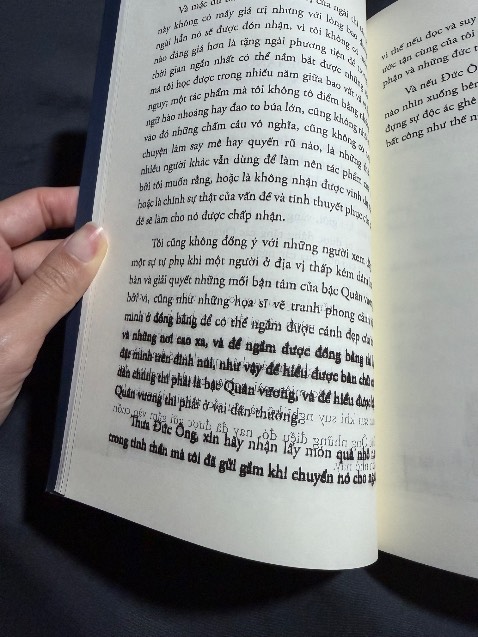 Và mặc dù
này không có mấy giá trị nhưng với lòng bao
ngài hẳn nó sẽ được đón nhận, vì tôi không có
nào đáng giá hơn là tặng ngài phương tiện để
thời gian ngắn nhất có thể nắm bắt được những
mà tôi học được trong nhiều năm giữa bao vất vả
nguy; một tác phẩm mà tôi không tô điểm bằng
ngữ bào nhoáng hay đao to búa lớn, cũng không
vào đó những châm câu vô nghĩa, cũng không có
chuyện làm say mê hay quyến rũ nào, là những
nhiều người khác vẫn dùng để làm nên tác phẩm
bởi tôi muốn rằng, hoặc là không nhận được vinh
hoặc là chính sự thật của vấn đề và tính thuyết phục của
đề sẽ làm cho nó được chấp nhận.
Tôi cũng không đồng ý với những người xem
một sự tự phụ khi một người ở địa vị thấp kém dám
bàn và giải quyết những mối bận tâm của bậc Quân vương
bởi vì, cũng như những họa sĩ vẽ tranh phong cảnh
mình ở đồng bằng để có thể ngắm được cảnh đẹp của
và những nơi cao xa, và để ngắm được đồng bằng thì
đặt mình trên đỉnh núi, như vậy để hiểu được bản chất
dân chúng thì phải là bậc Quân vương, và để hiểu được
Quân vương thì phải ở vai dân thường.
Thưa Đức Ông, xin hãy nhận lấy món quà nhỏ
trong tinh thần mà tôi đã gửi gắm khi chuyển nó cho
vì thế nếu đọc và suy
ước tận cùng của tôi
phận và những đức
Và nếu Đức
nào nhìn xuống bên
đựng sự độc ác ghê
bất công như thế